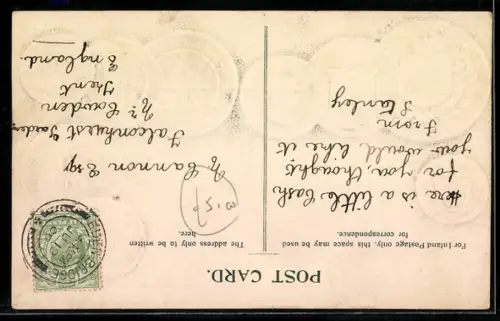 POST CARD.
For Inland Postage only, this space may be used
for correspondence.
The address only to be written
here.
Here is a little Cash
for you, thought
you would like it
From
Stanley
Cannon Esq
Falconhurst Garden
Nr Cowden
Kent
England.